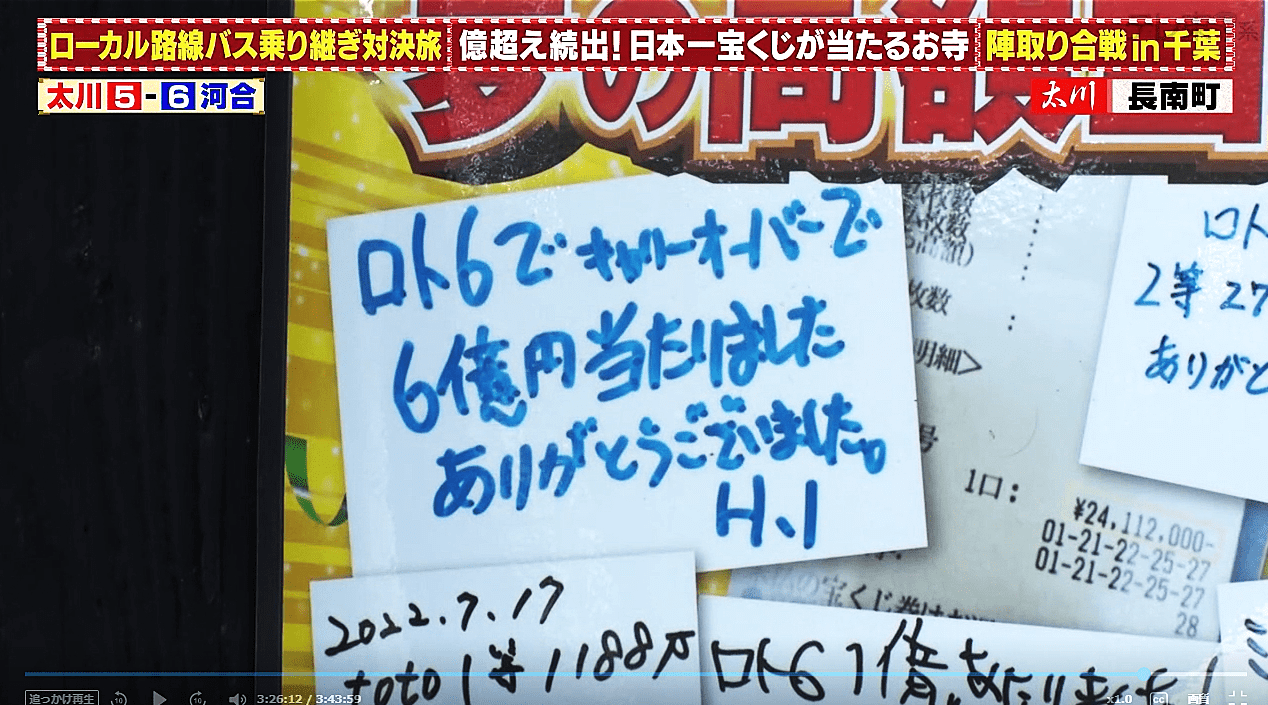 ローカル路線バス乗り継ぎ対決旅 億超え続出!日本一宝くじが当たるお寺 陣取り合戦in千葉
太川 5-6 河合
太川 長南町
夢の高額
ロト6でキャリーオーバーで
6億円当たりました
ありがとうございました。
H.I
枚数
枚数
枚数
明細>
号
1口:
¥24,112,000-
01-21-22-25-27
01-21-22-25-27
28
ロト
2等 27
ありがと
2022.7.17
toto 1等 1188万
ロト6 1億
宝くじ券は
追っかけ再生
10
10
3:26:12 / 3:43:59
x1.0
cc
画質